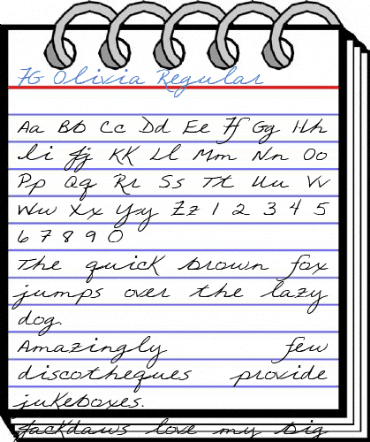 FG Olivia Regular
Aa Bb Cc Dd Ee Ff Gg Hh
Ii Jj KK Ll Mm Nn Oo
Pp Qq Rr Ss Tt Uu Vv
Ww Xx Yy Zz 1 2 3 4 5
6 7 8 9 0
The quick brown fox
jumps over the lazy
dog.
Amazingly few
discotheques provide
jukeboxes.
Jackdaws love my big